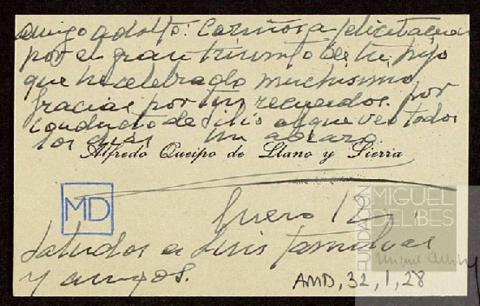 amigo adolfo: Cariñosa felicitacion
por el gran triunfo de tu hijo
que he celebrado muchisimo
Gracias por tus recuerdos por
conducto de al que veo todos
los dias un abrazo
Alfredo Queipo de Llano y Sierra
MD
Enero 12
Saludos a Luis
y amigos.
AMD, 32, 1, 28
FUNDACIÓN
MIGUEL
DELIBES